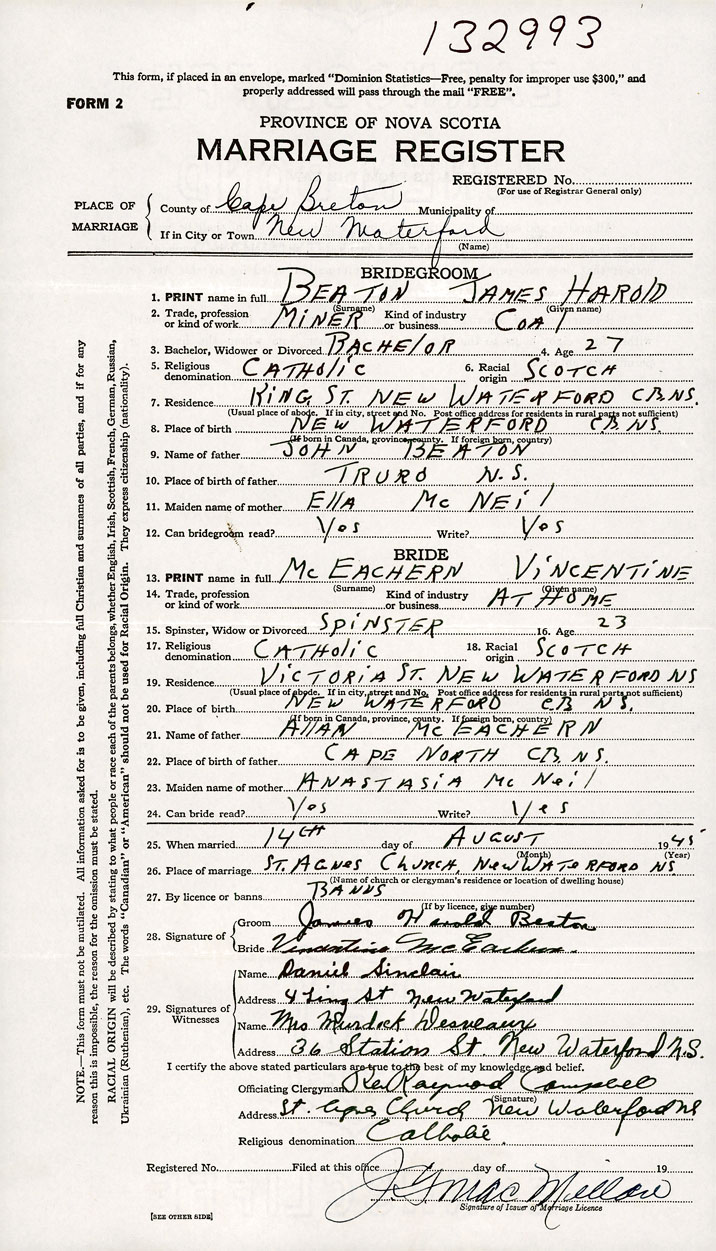 132993
This form, if placed in an envelope, marked “Dominion Statistics—Free, penalty for improper use $300,” and
properly addressed will pass through the mail “FREE”.
FORM 2
PROVINCE OF NOVA SCOTIA
MARRIAGE REGISTER
REGISTERED No.
(For use of Registrar General only)
PLACE OF MARRIAGE
County of Cape Breton Municipality of
If in City or Town New Waterford
(Name)
BRIDEGROOM
1. PRINT name in full BEATON JAMES HAROLD
(Surname) (Given name)
2. Trade, profession or kind of work MINER Kind of industry or business COAl
3. Bachelor, Widower or Divorced BACHELOR 4. Age 27
5. Religious denomination CATHOLIC 6. Racial origin SCOTCH
7. Residence KING ST. NEW WATERFORD CB.NS.
(Usual place of abode. If in city, street and No. Post office address for residents in rural parts not sufficient)
8. Place of birth NEW WATERFORD CB. NS.
(If born in Canada, province, county. If foreign born, country)
9. Name of father JOHN BEATON
10. Place of birth of father TRURO N.S.
11. Maiden name of mother EllA McNEil
12. Can bridegroom read? Yes Write? Yes
BRIDE
13. PRINT name in full McEACHERN VINCENTINE
(Surname) (Given name)
14. Trade, profession or kind of work Kind of industry or business AT HOME
15. Spinster, Widow or Divorced SPINSTER 16. Age 23
17. Religious denomination CATHOLIC 18. Racial origin SCOTCH
19. Residence VICTORIA ST. NEW WATERFORD NS
(Usual place of abode. If in city, street and No. Post office address for residents in rural parts not sufficient)
20. Place of birth NEW WATERFORD CB NS.
(If born in Canada, province, county. If foreign born, country)
21. Name of father AllAN McEACHERN
22. Place of birth of father CAPE NORTH CB. NS.
23. Maiden name of mother ANASTASIA McNeil
24. Can bride read? Yes Write? Yes
25. When married 14th day of AUGUST 1945
(Month) (Year)
26. Place of marriage ST. AGNES CHURCH, NEW WATERFORD NS
(Name of church or clergyman's residence or location of dwelling house)
27. By licence or banns BANNS
(If by licence, give number)
28. Signature of
Groom James Harold Beaton
Bride Vincentine McEachern.
29. Signatures of Witnesses
Name Daniel Sinclair
Address 4 Ling St New Waterford
Name Mrs Murdock Desveaux
Address 36 Station St. New Waterford N.S.
I certify the above stated particulars are true to the best of my knowledge and belief.
Officiating Clergyman Rev Raymond Campbell
(Signature)
Address St. Agnes Church New Waterford NS
Religious denomination Catholic.
Registered No. Filed at this office day of 19
J G MacMellow
Signature of Issuer of Marriage Licence
[SEE OTHER SIDE]
NOTE.—This form must not be mutilated. All information asked for is to be given, including full Christian and surnames of all parties, and if for any
reason this is impossible, the reason for the omission must be stated.
RACIAL ORIGIN will be described by stating to what people or race each of the parents belongs, whether English, Irish, Scottish, French, German, Russian,
Ukrainian (Ruthenian), etc. The words “Canadian” or “American” should not be used for Racial Origin. They express citizenship (nationality).